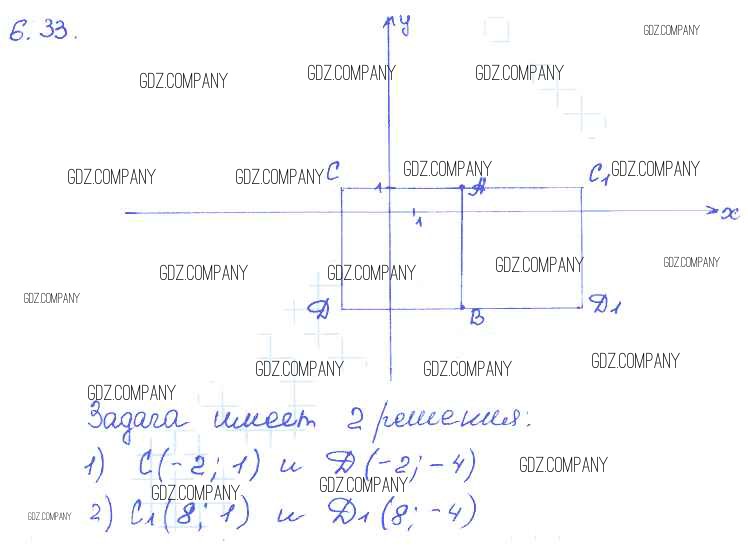 6.33.
y
GDZ.COMPANY
GDZ.COMPANY GDZ.COMPANY GDZ.COMPANY
GDZ.COMPANY GDZ.COMPANY C GDZ.COMPANY C1 GDZ.COMPANY
1 A
1 x
GDZ.COMPANY GDZ.COMPANY GDZ.COMPANY GDZ.COMPANY
GDZ.COMPANY
D B D1
GDZ.COMPANY GDZ.COMPANY GDZ.COMPANY
GDZ.COMPANY
Задача имеет 2 решения:
1) C(-2; 1) и D(-2; -4) GDZ.COMPANY
GDZ.COMPANY GDZ.COMPANY
GDZ.COMPANY 2) C1(8; 1) и D1(8; -4)